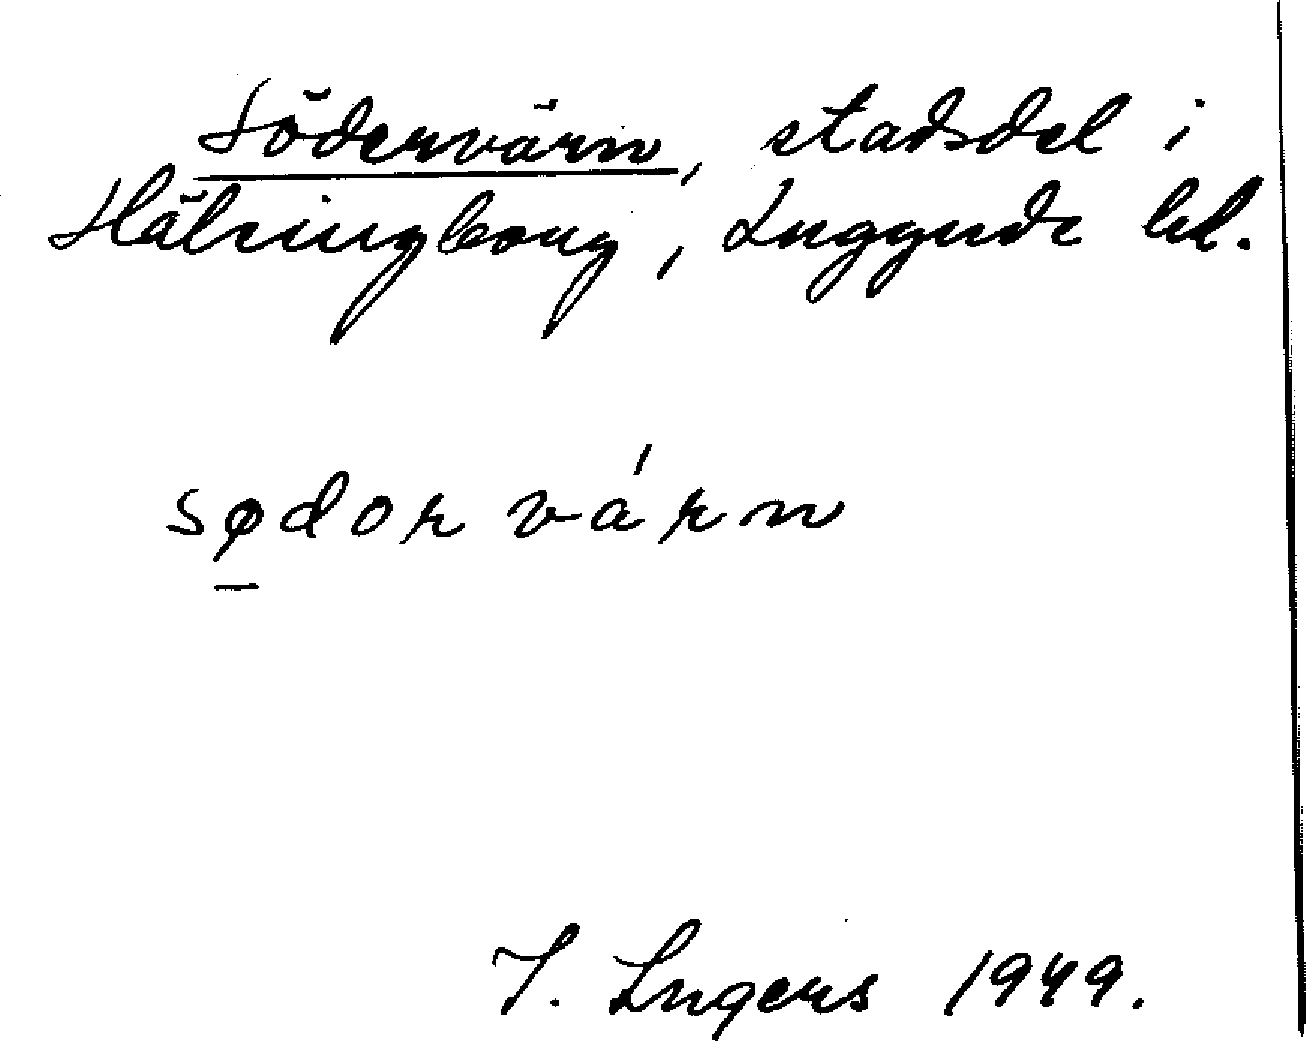 Södervärn, stadsdel i
Hälsingborg, Luggude hd.
sødor várn
I. Ingers 1949.